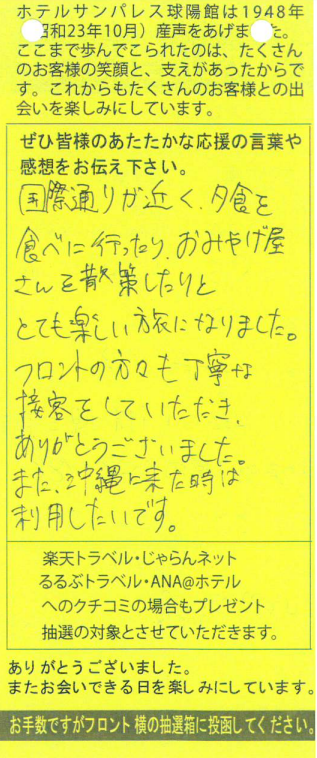 ホテルサンパレス球陽館は1948年
昭和23年10月）産声をあげました。
ここまで歩んでこられたのは、たくさん
のお客様の笑顔と、支えがあったからで
す。これからもたくさんのお客様との出
会いを楽しみにしています。
ぜひ皆様のあたたかな応援の言葉や
感想をお伝え下さい。
国際通りが近く、夕食を
食べに行ったり、おみやげ屋
さんを散策したりと
とても楽しい旅になりました。
フロントの方々も丁寧な
接客をしていただき、
ありがとうございました。
また、沖縄に来た時は
利用したいです。
楽天トラベル・じゃらんネット
るるぶトラベル・ANA@ホテル
へのクチコミの場合もプレゼント
抽選の対象とさせていただきます。
ありがとうございました。
またお会いできる日を楽しみにしています。
お手数ですがフロント横の抽選箱に投函してください。